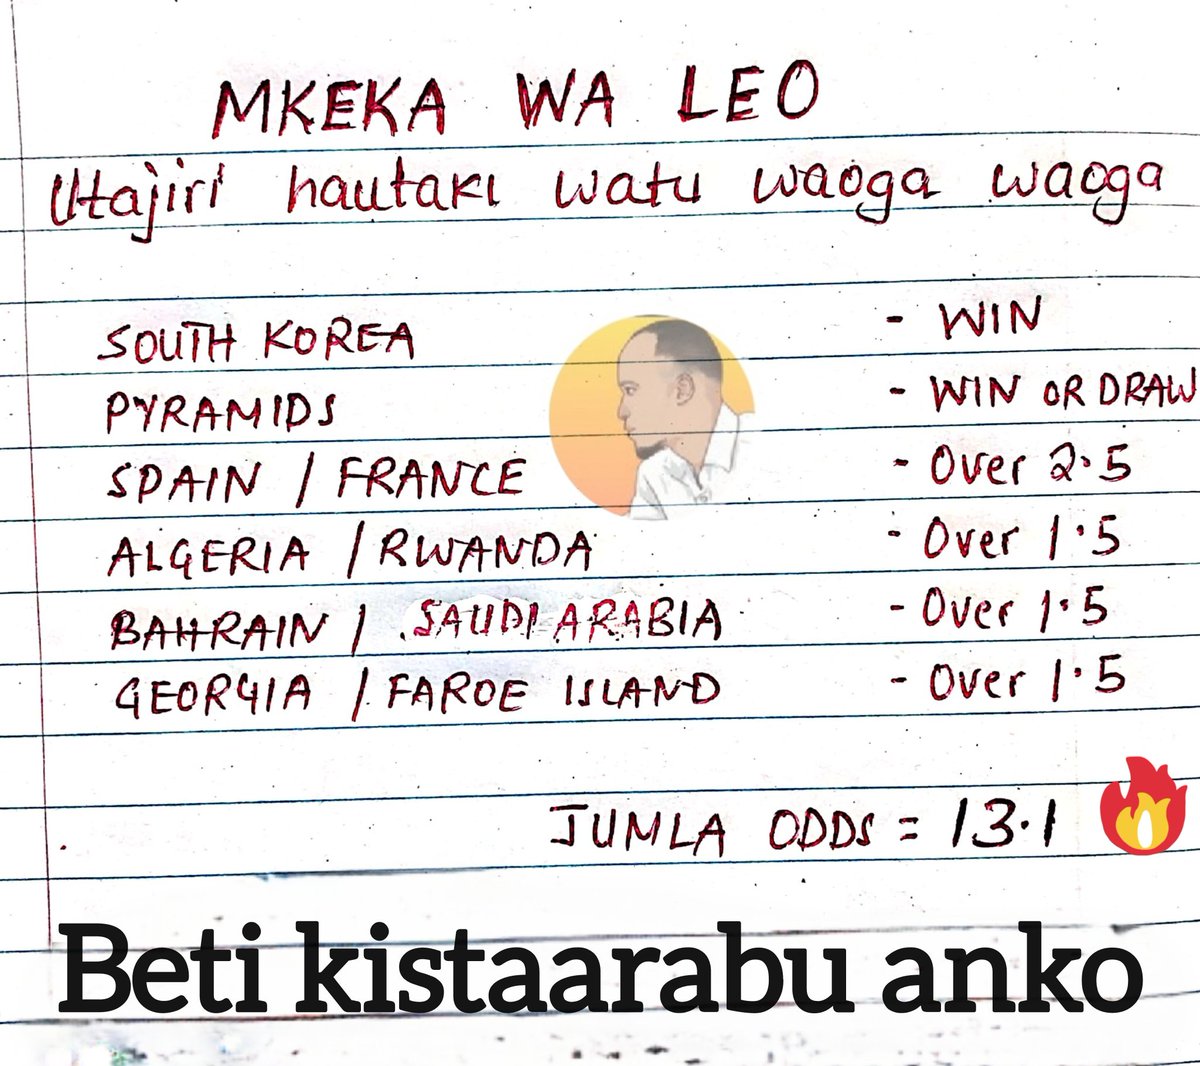 MKEKA WA LEO
Utajiri hautaki watu waoga waoga
SOUTH KOREA - WIN
PYRAMIDS - WIN OR DRAW
SPAIN / FRANCE - Over 2.5
ALGERIA / RWANDA - Over 1.5
BAHRAIN / SAUDI ARABIA - Over 1.5
GEORGIA / FAROE ISLAND - Over 1.5
JUMLA ODDS = 13.1
Beti kistaarabu anko